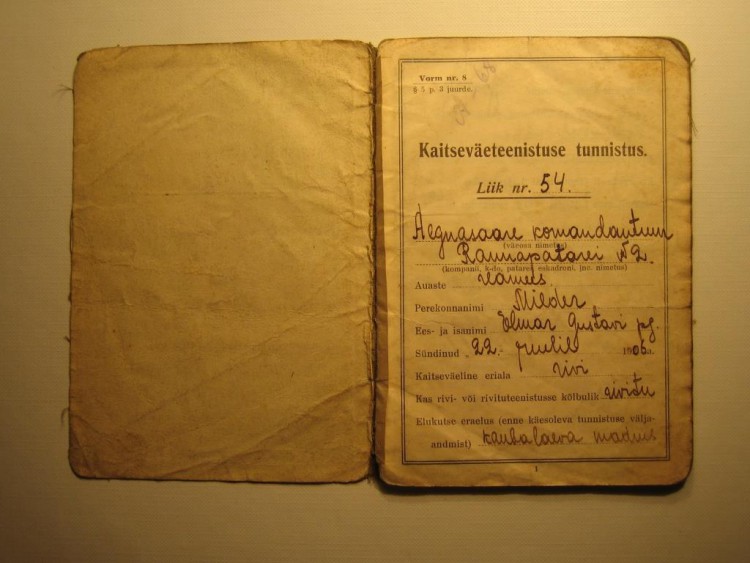 Vorm nr. 8
§ 5 p. 3 juurde.
Kaitseväeteenistuse tunnistus.
Liik nr. 54.
Aegnasaare komandantuur
(väeosa nimetus)
Rannapatarei N2.
(kompanii, k-do, patarei, eskadroni, jne. nimetus)
Auaste reamees.
Perekonnanimi Milder
Ees- ja isanimi Elmar Gustavi pg.
Sündinud „22.” juulil 1906 a.
Kaitseväeline eriala rivi
Kas rivi- või rivituteenistusse kõlbulik rivitu
Elukutse eraelus (enne käesoleva tunnistuse välja-
andmist) kaubalaeva madrus
1